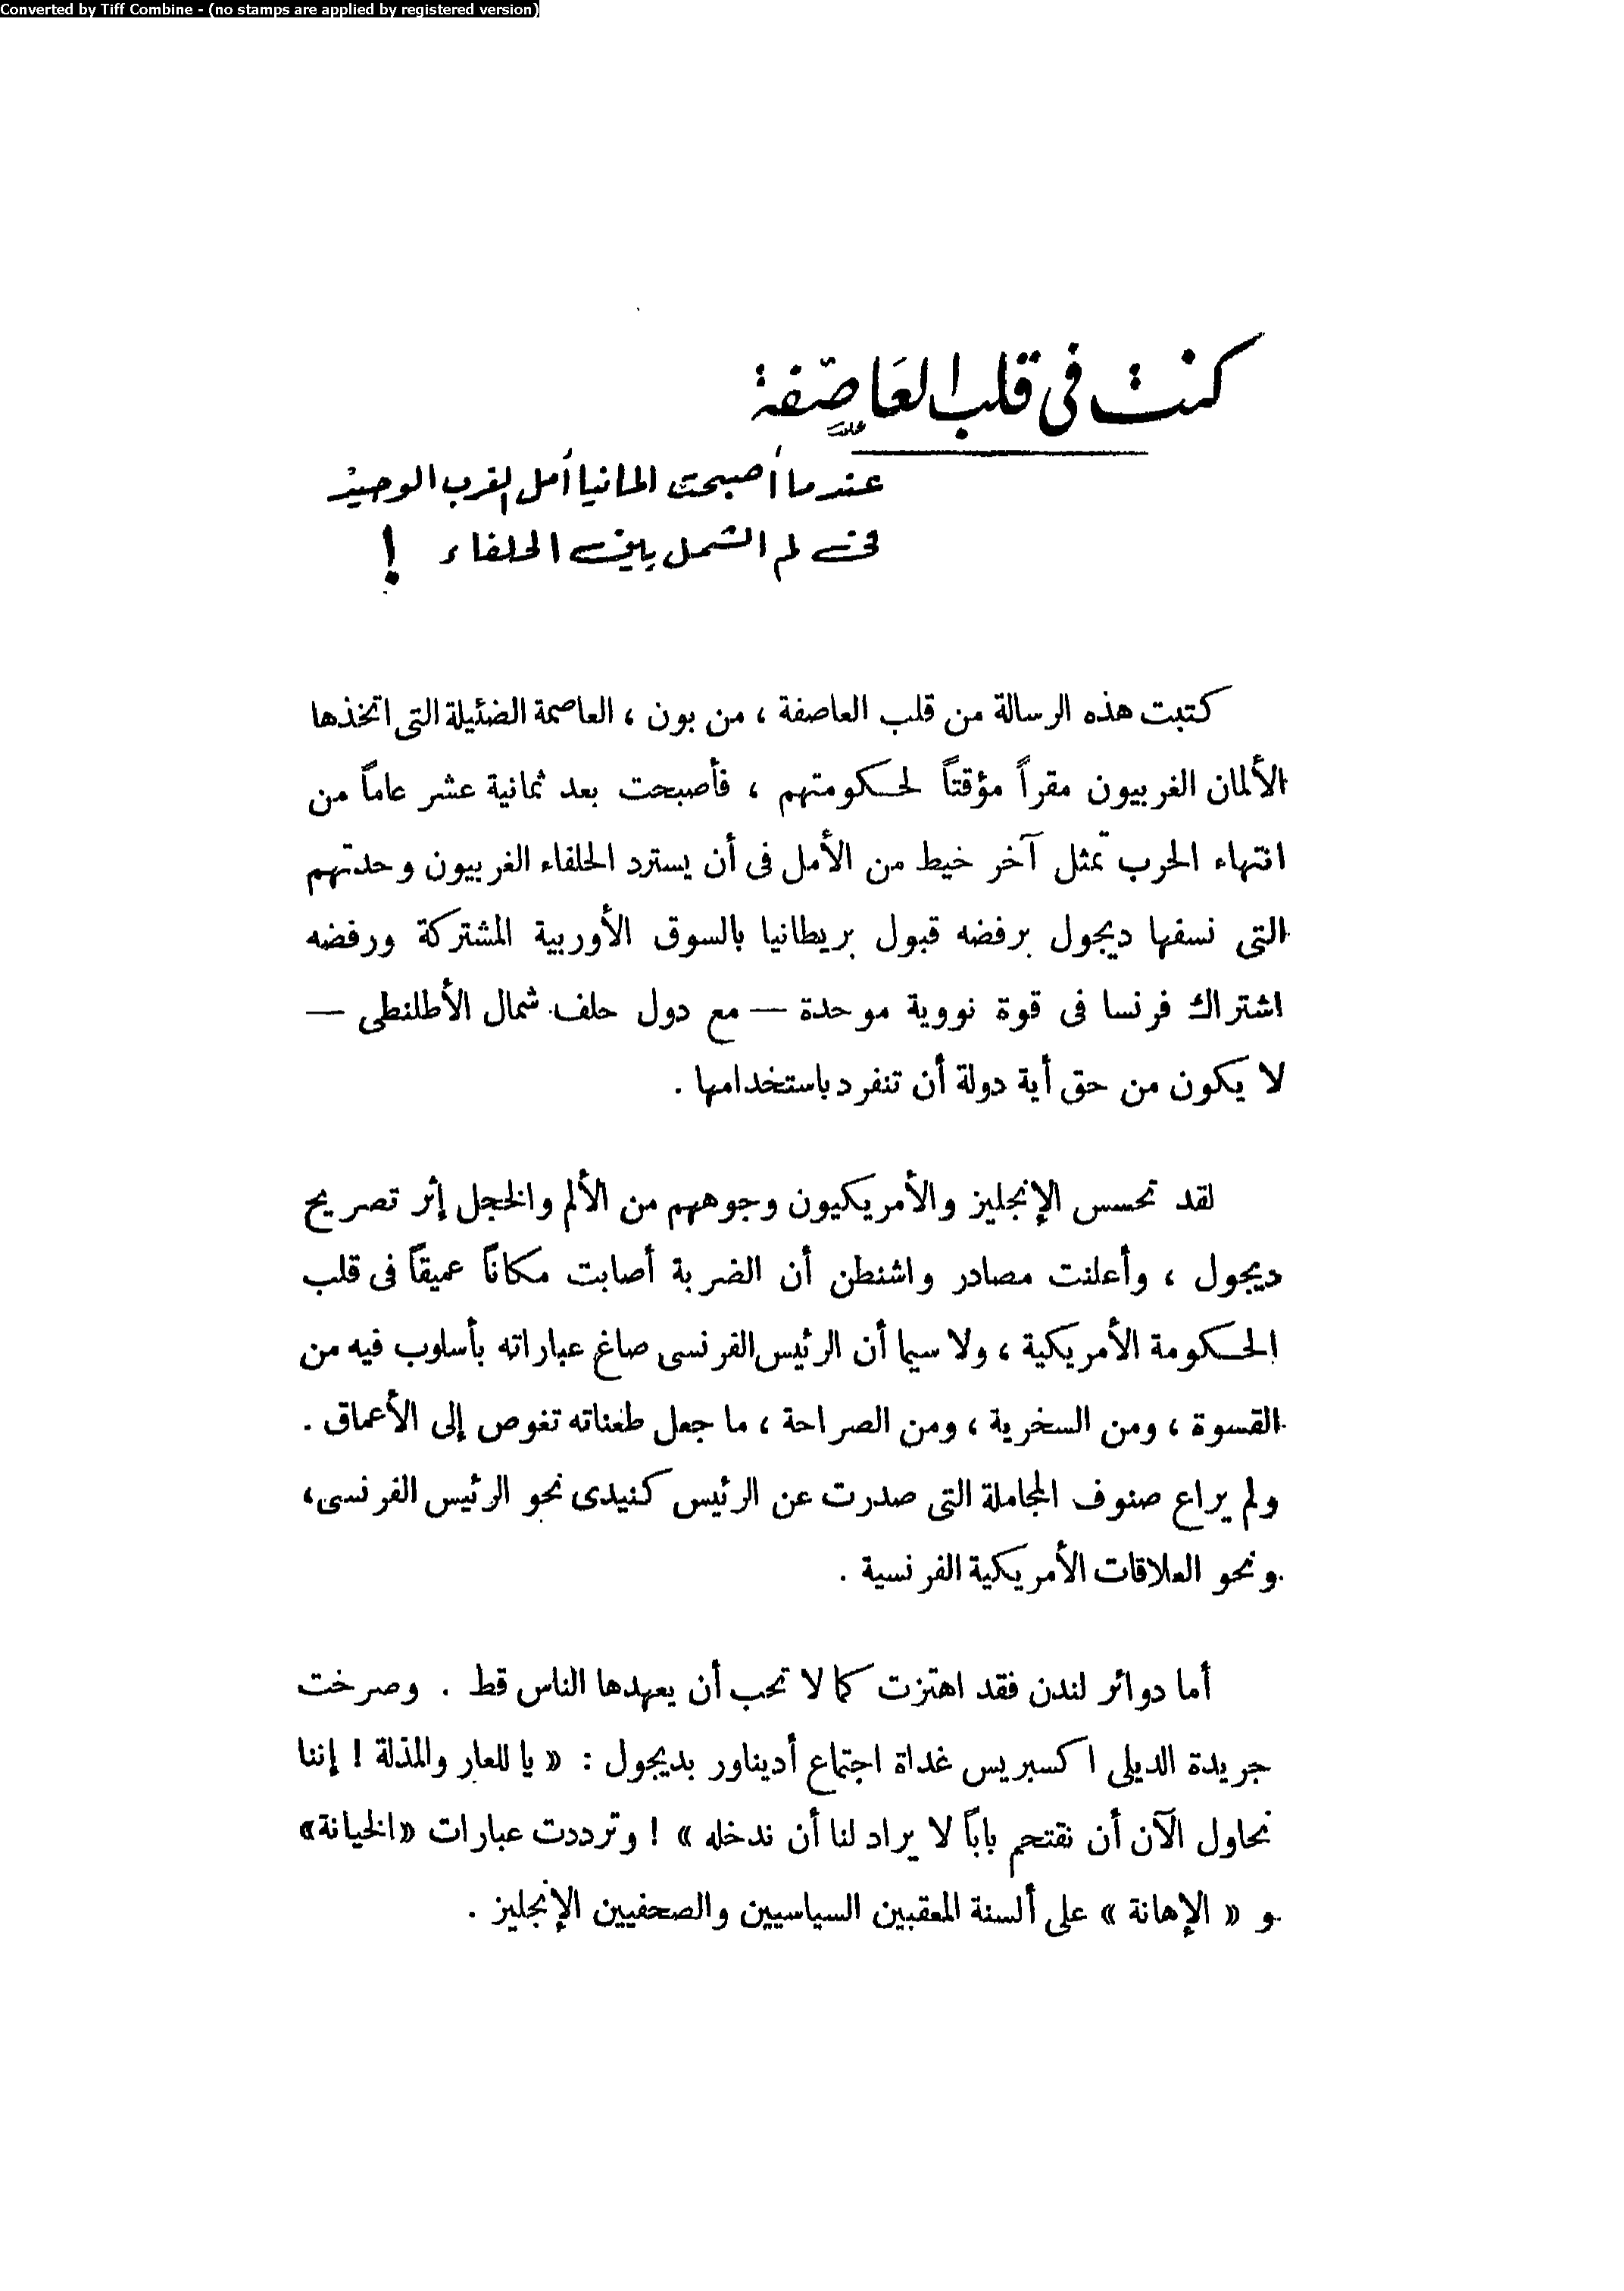 Converted by Tiff Combine - (no stamps are applied by registered version)
كنت فى قلب العَاصّفة
عندما أصبحت المانيا أمل الغرب الوحيد
فى لم الشمل بين الحلفاء !
كتبت هذه الرسالة من قلب العاصفة ، من بون ، العاصمة الضئيلة التى اتخذها
الألمان الغربيون مقراً مؤقتاً لحكومتهم ، فأصبحت بعد ثمانية عشر عاماً من
انتهاء الحرب تمثل آخر خيط من الأمل فى أن يسترد الحلفاء الغربيون وحدتهم
التى نسفها ديجول برفضه قبول بريطانيا بالسوق الأوربية المشتركة ورفضه
اشتراك فرنسا فى قوة نووية موحدة — مع دول حلف شمال الأطلنطى —
لا يكون من حق أية دولة أن تنفرد باستخدامها .
لقد تحسس الإنجليز والأمريكيون وجوههم من الألم والخجل إثر تصريح
ديجول ، وأعلنت مصادر واشنطن أن الضربة أصابت مكاناً عميقاً فى قلب
الحكومة الأمريكية ، ولا سيما أن الرئيس الفرنسى صاغ عباراته بأسلوب فيه من
القسوة ، ومن السخرية ، ومن الصراحة ، ما جعل طعناته تغوص إلى الأعماق .
ولم يراع صنوف المجاملة التى صدرت عن الرئيس كنيدى نحو الرئيس الفرنسى ،
ونحو العلاقات الأمريكية الفرنسية .
أما دوائر لندن فقد اهتزت كما لا تحب أن يعهدها الناس قط . وصرخت
جريدة الديلى اكسبريس غداة اجتماع أديناور بديجول : « يا للعار والمذلة ! إننا
نحاول الآن أن نقتحم باباً لا يراد لنا أن ندخله » ! وترددت عبارات «الخيانة»
و « الإهانة » على ألسنة المعقبين السياسيين والصحفيين الإنجليز .